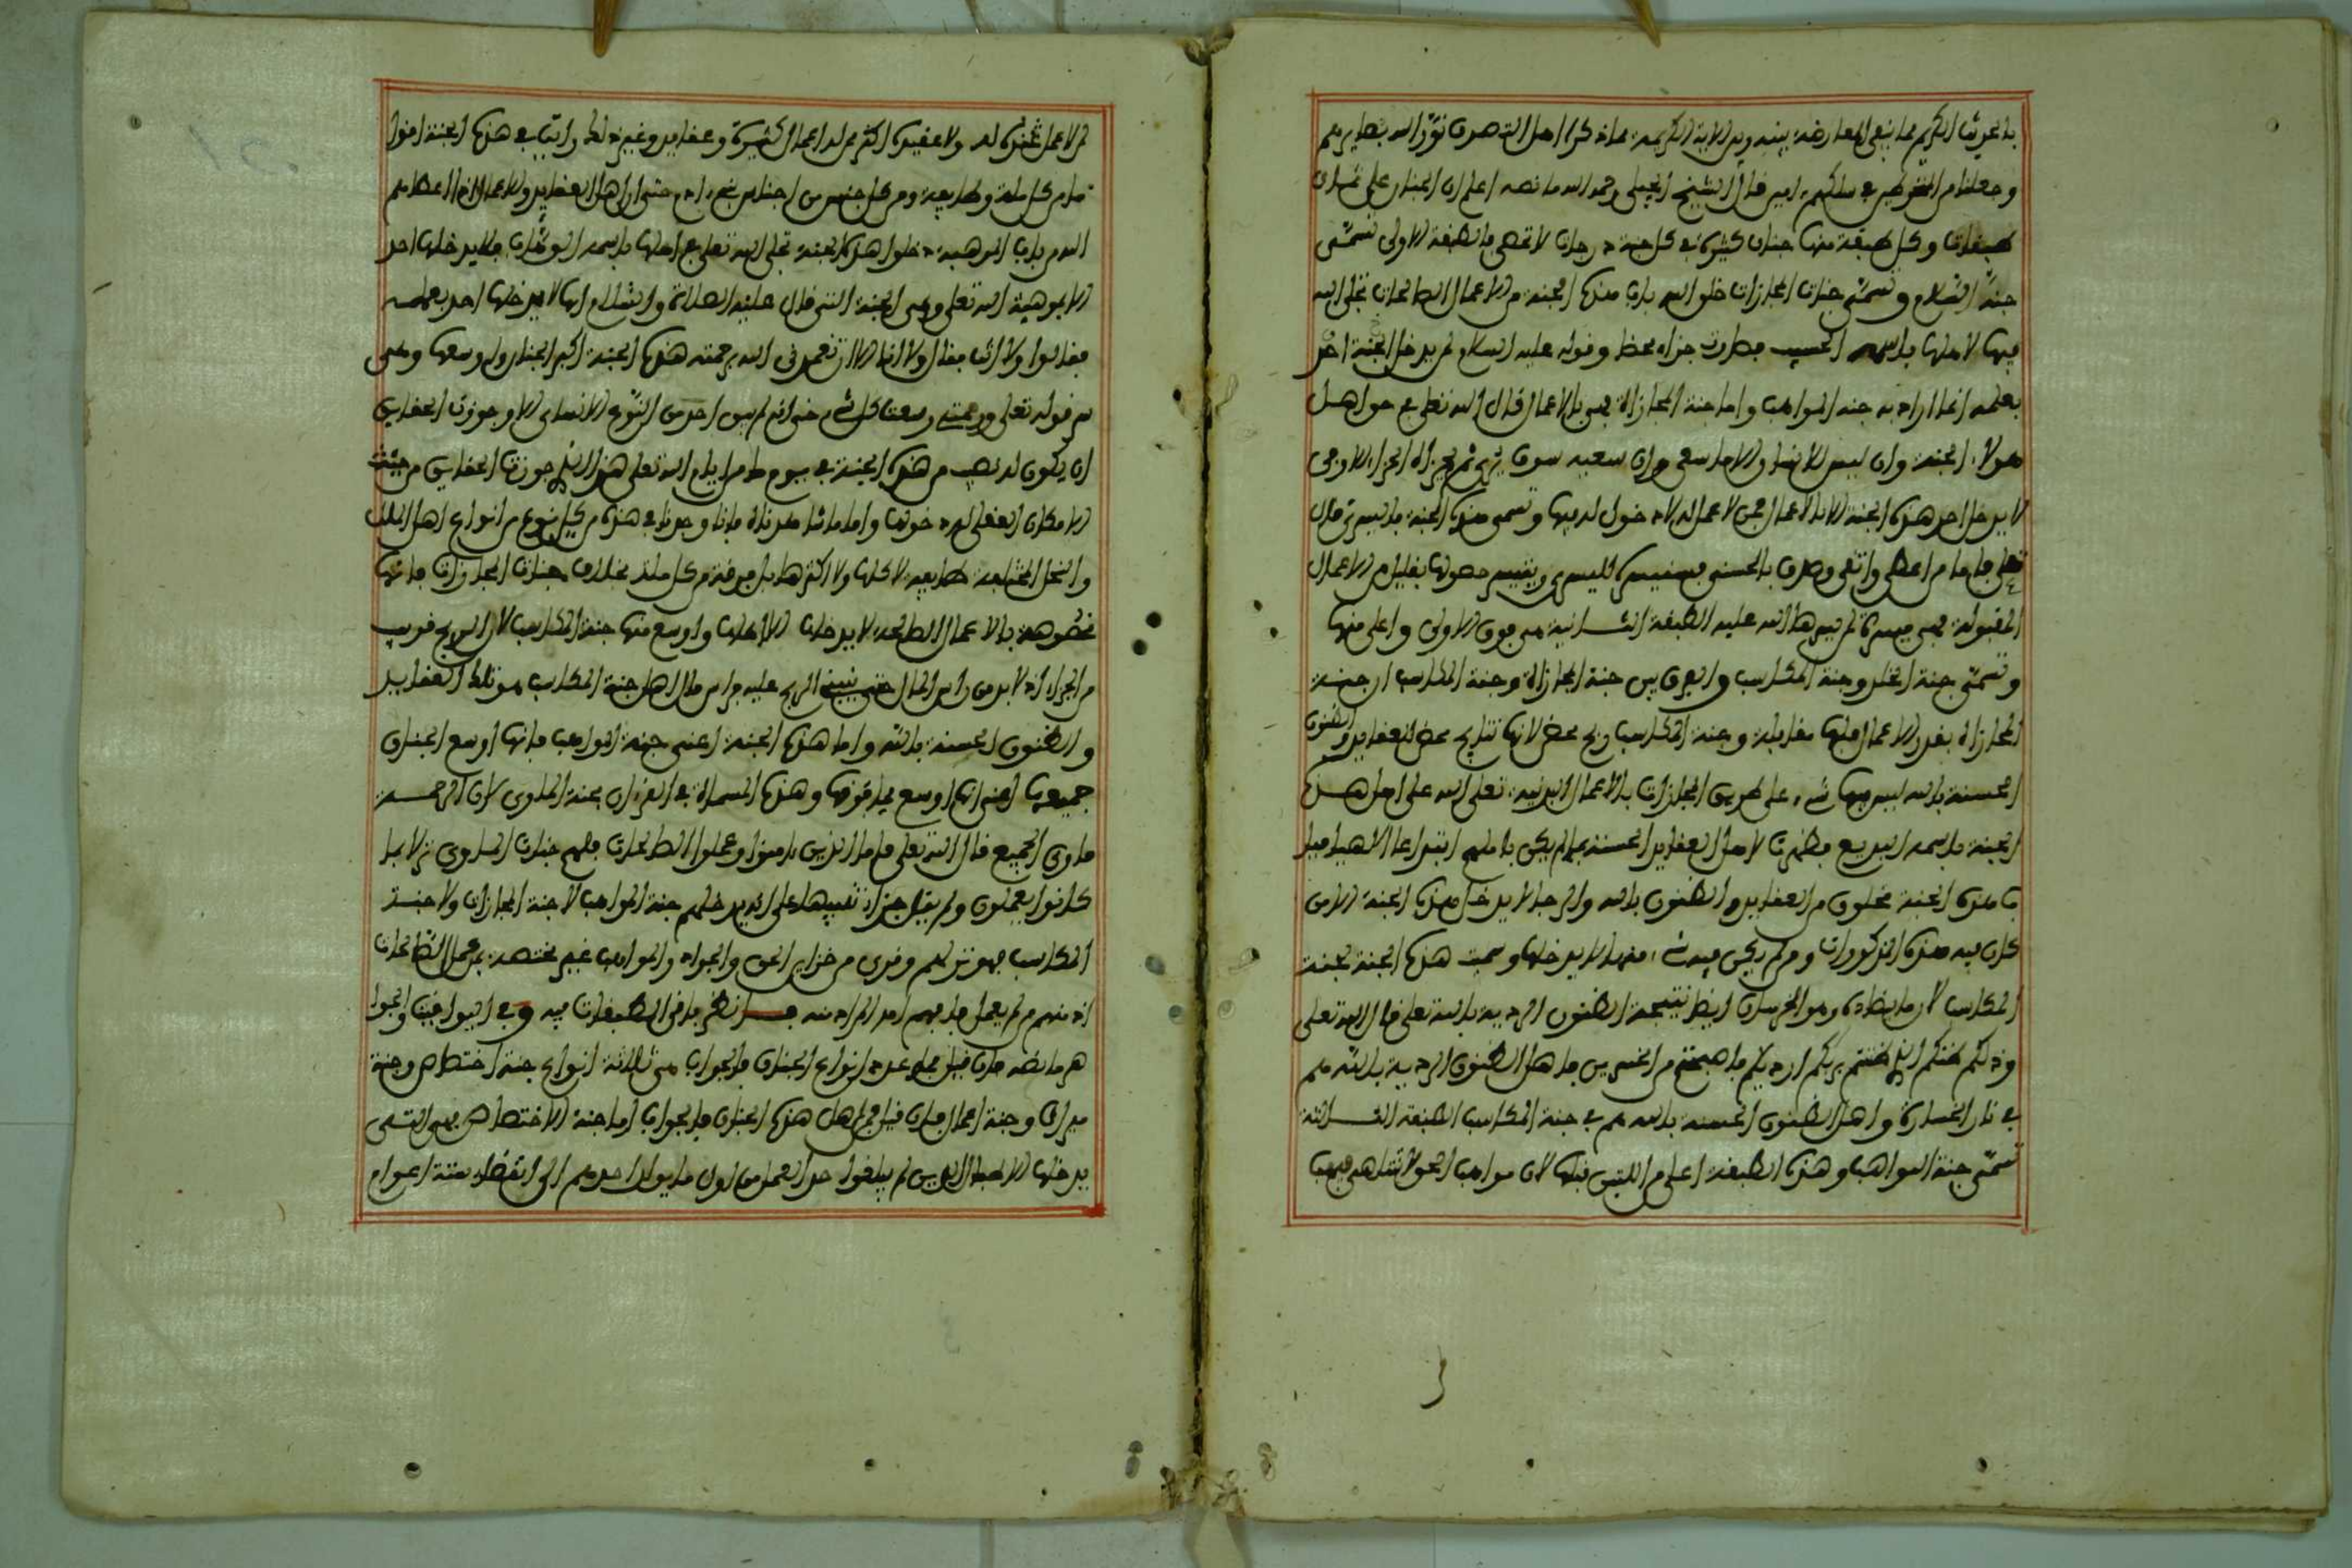 بالحديث الكريم مما ينبغي المعارضة بينه وبين الاية الكريمة مما ذكرا اهل التصوف نور الله بصايرهم
وجعلنا من المنخرطين في سلكهم امين قال الشيخ الجيلي رحمه الله ما نصه اعلم ان الجنان على ثمان
طبقات وكل طبقة منها جنان كثيرة في كل جنة درجات لا تحصى فالطبقة الاولى تسمى
جنة السلام وتسمى جنات المجازات خلق الله باب هذه الجنة من الاعمال الصالحات تجلى الله
فيها لاهلها باسمه الحسيب فصارت جزاء محظ وقوله عليه السلام لم يدخل الجنة احد
بعلمه انما اراد به جنة المواهب واما جنة المجازاة فهي بالاعمال قال الله تعالى في حق اهل
هولاء الجنة وان ليس للانسان الا ما سعى وان سعيه سوف يرى ثم يجزاه الجزاء الاوفى
لا يدخل احد هذه الجنة الا بالاعمال فمن لا عمل له لا دخول له فيها وتسمى هذه الجنة باليسرى قال
تعلى فاما من اعطى واتقى وصدق بالحسنى فسنيسره لليسرى وتيسر حصولها بقليل من الاعمال
المقبولة فهي ميسرة لمن يسرها الله عليه الطبقة الثانية هي فوق الاولى واعلى منها
وتسمى جنة الخلد وجنة المكاسب والفرق بين جنة المجازاة وجنة المكاسب ان جنة
المجازاة بقدر الاعمال فلها مقابلة وجنة المكاسب ربح محض لانها نتايج محض العقايد والظنون
الحسنة بالله ليس فيها شيء على طريق المجازات بالاعمال البدنية تجلى الله على اهل هذه
الجنة باسمه البديع فظهرت لاهل العقايد الحسنة ما لم يكن باملهم ابتداعا الاهيا
باب هذه الجنة مخلوق من العقايد والظنون بالله والرجا لا يدخل هذه الجنة الا من
كان فيه هذه المذكورات ومن لم يكن فيه شيء منها لا يدخلها وسميت هذه الجنة بجنة
المكاسب لان ما يضاده وهو الخسران ايضا نتيجة الظنون الردية بالله تعلى قال الله تعلى
وذلكم ظنكم الذي ظننتم بربكم ارديكم فاصبحتم من الخاسرين فاهل الظنون الردية بالله هم
في نار الخسارة واهل الظنون الحسنة بالله هم في جنة المكاسب الطبقة الثالثة
تسمى جنة المواهب وهذه الطبقة اعلى من اللتين قبلها لان مواهب الحق لا تتناهى فيهب
لمن لا عمل له ولا عقيدة اكثر ممن له اعمال كثيرة وعقايد وغير ذلك رايت في هذه الجنة اقواما
من كل ملة وطايفة ومن كل جنس من اجناس بني ادم حتى ان اهل العقايد والاعمال اذا اعطاهم
الله من باب الوهبية دخلوا هذه الجنة تجلى الله تعلى على اهلها باسمه الوهاب فلا يدخلها احد
الا بموهبة الله تعلى وهي الجنة التي قال عليه الصلاة والسلام انها لا يدخلها احد بعمله
فقالوا ولا انت فقال ولا انا الا ان تغمدني الله برحمته هذه الجنة اكبر الجنان واوسعها وهي
سر قوله تعلى ورحمتي وسعت كل شيء حتى انه لم يبق احد من النوع الانساني الا وجوزت الحقايق
ان يكون له نصيب من هذه الجنة في يوم ما من ايام الله تعلى هذا الذي جوزتها الحقايق من حيث
الامكان العقلي له دخولها واما ما شاهدناه فانا وجدنا في هذه من كل نوع من انواع اهل الملل
والنحل المختلفة طايفة لا كلها ولا اكثرها بل فرقة من كل ملة بخلاف جنات المجازات فانها
مخصوصة بالاعمال الصالحة لا يدخلها الا اهلها واوسع منها جنة المكاسب لان الربح قريب
من الجزاء اذ لا بد من راس المال حتى يبني الربح عليه فراس مال اهل جنة المكاسب هو تلك العقايد
والظنون الحسنة بالله واما هذه الجنة اعني جنة المواهب فانها اوسع الجنان
جميعها اعني انها اوسع مما فوقها وهذه المسماة في القرءان بجنة الماوى لان الرحمة
ماوى الجميع قال الله تعلى فاما الذين امنوا وعملوا الصالحات فلهم جنات الماوى نزلا بما
كانوا يعملون ولم يقل جزاء تنبيها على انه يدخلهم جنة المواهب لا جنة المجازات ولا جنة
المكاسب فهو نزل لهم وقرى من خزاين الحق والجواد والمواهب غير مختصة بمن عمل الصالحات
اذ منهم من لم يعمل فافهم امد المراد منه فانظر باقي الطبقات فيه وفي اليواقيت والجوا
هر ما نصه فان قيل فما عدد انواع الجنان فالجواب هي ثلاثة انواع جنة اختصاص وجنة
ميراث وجنة اعمال فان قيل فمن اهل هذه الجنان فالجواب اما جنة الاختصاص فهي التي
يدخلها الاطفال الذين لم يبلغوا حد العمل من اول ما يولد احدهم الى انقضاء ستة اعوام